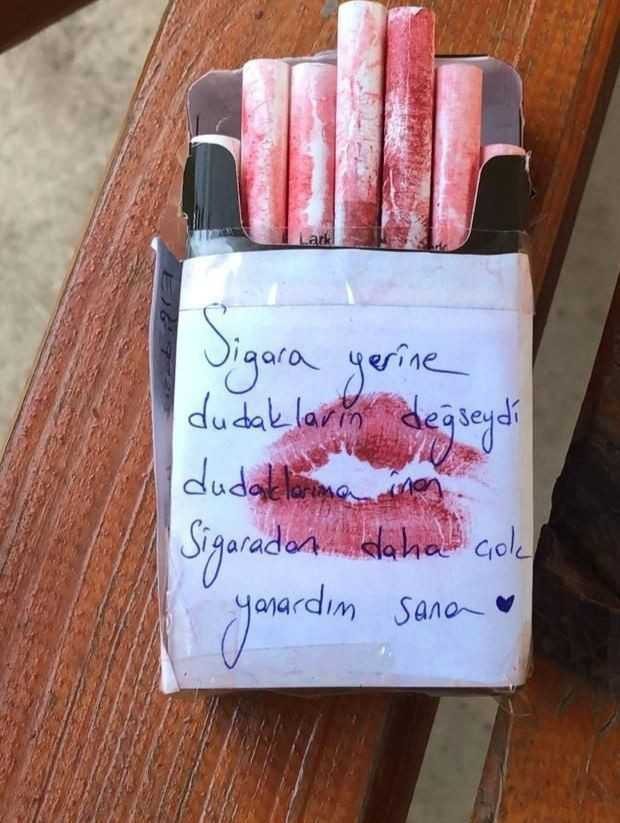 Lark
Sigara yerine
dudakların değseydi
dudaklarıma inan
Sigaradan daha çok
yanardım sana ♥